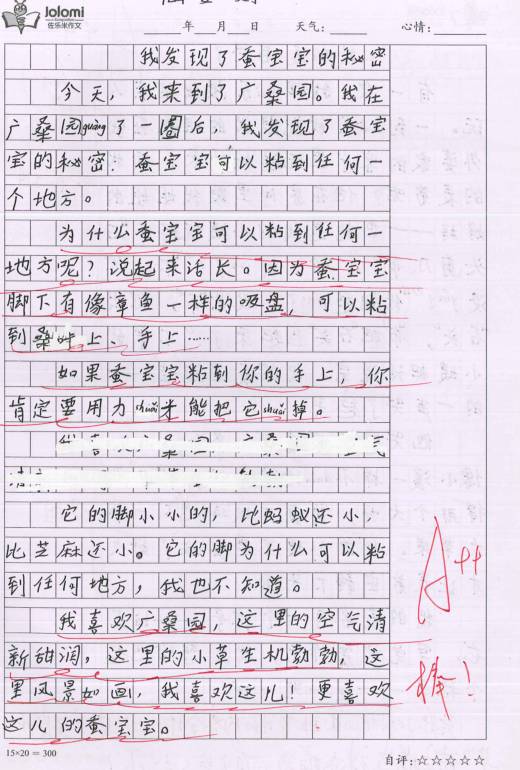 Jolomi
佐乐米作文
年 月 日 天气： 心情：
我发现了蚕宝宝的秘密
今天，我来到了广桑园。我在
广桑园guàng了一圈后，我发现了蚕宝
宝的秘密！蚕宝宝可以粘到任何一
个地方。
为什么蚕宝宝可以粘到任何一
地方呢？说起来话长。因为蚕宝宝
脚下有像章鱼一样的吸盘，可以粘
到桑叶上、手上……
如果蚕宝宝粘到你的手上，你
肯定要用力shuǎi才能把它shuǎi掉。
它的脚小小的，比蚂蚁还小，
比芝麻还小。它的脚为什么可以粘
到任何地方，我也不知道。
我喜欢广桑园，这里的空气清
新甜润，这里的小草生机勃勃，这
里风景如画，我喜欢这儿！更喜欢
这儿的蚕宝宝。
A++
棒！
15×20＝300
自评：☆☆☆☆☆